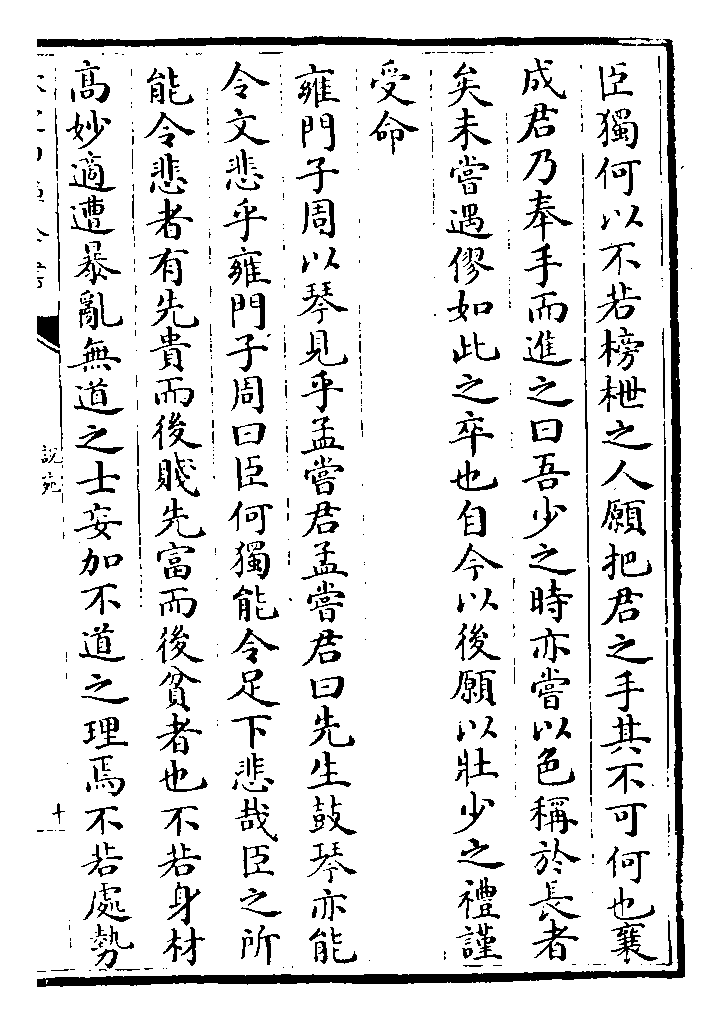 臣獨何以不若榜枻之人願把君之手其不可何也襄
成君乃奉手而進之曰吾少之時亦嘗以色稱於長者
矣未嘗遇僇如此之卒也自今以後願以壯少之禮謹
受命
雍門子周以琴見乎孟嘗君孟嘗君曰先生鼓琴亦能
令文悲乎雍門子周曰臣何獨能令足下悲哉臣之所
能令悲者有先貴而後賤先富而後貧者也不若身材
高妙適遭暴亂無道之士妄加不道之理焉不若處勢
說苑
十